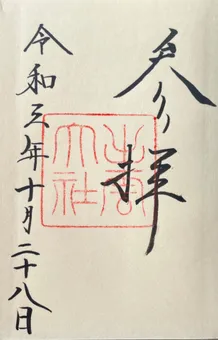 参拝
出雲
大社
令和三年十月二十八日